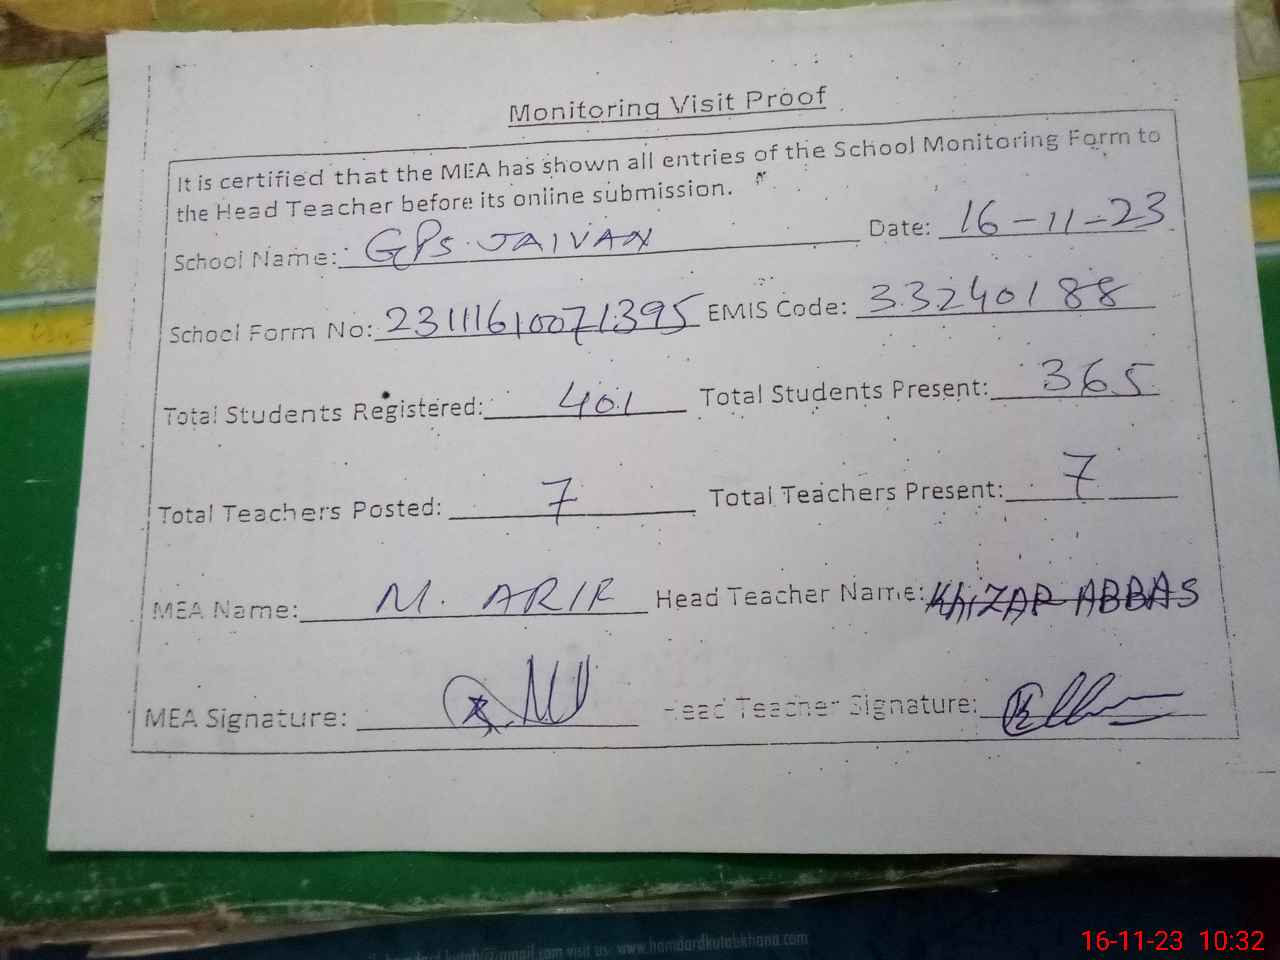 Monitoring Visit Proof
It is certified that the MEA has shown all entries of the School Monitoring Form to
the Head Teacher before its online submission.
School Name: GPS JAIVAN Date: 16-11-23
School Form No: 23111610071395 EMIS Code: 33240188
Total Students Registered: 401 Total Students Present: 365
Total Teachers Posted: 7 Total Teachers Present: 7
MEA Name: M. ARIF Head Teacher Name: KHIZAR ABBAS
MEA Signature: Head Teacher Signature:
@gmail.com visit us: www.hamdardkutabkhana.com
16-11-23 10:32